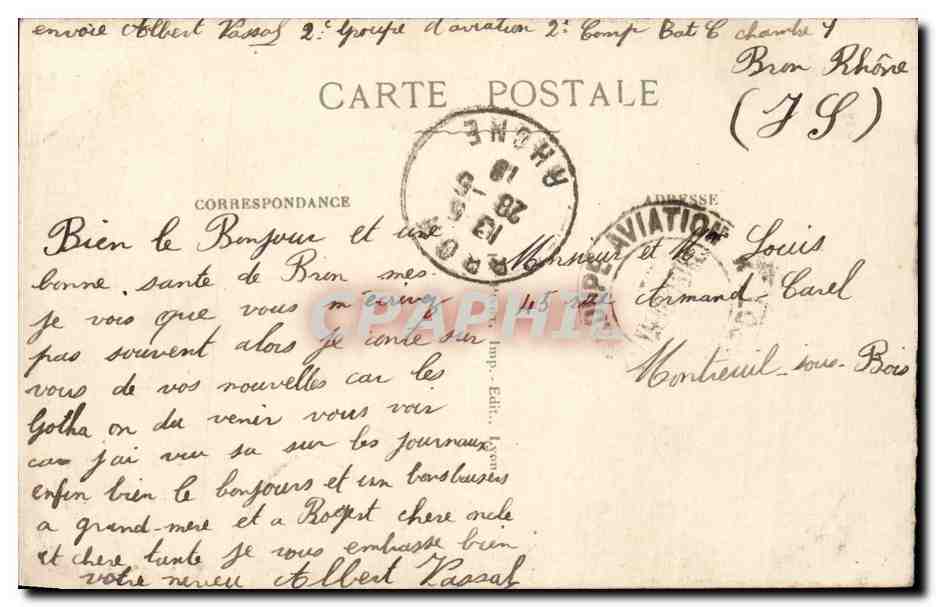 envoie Albert Vassal 2e Groupe d'aviation 2e Comp Bat C chambre 7
Bron Rhône
(F S)
CARTE POSTALE
CORRESPONDANCE
ADRESSE
RHONE
13 15
28 - 5
18
BRON
AVIATION
Bien le Bonjour et une
bonne sante de Bron mes
je vois que vous m'écrivez
pas souvent alors je conte sur
vous de vos nouvelles car les
Gotha on du venir vous voir
car j'ai vu sa sur les journaux
enfin bien le bonjours et un bons baisers
a grand-mere et a Rogert chere oncle
et chere tante je vous embrasse bien
votre neveu Albert Vassal
Monsieur et Me Louis
45 rue Armand-Carel
Montreuil-sous-Bois
Imp.-Edit., Lyon
CPAPHIL